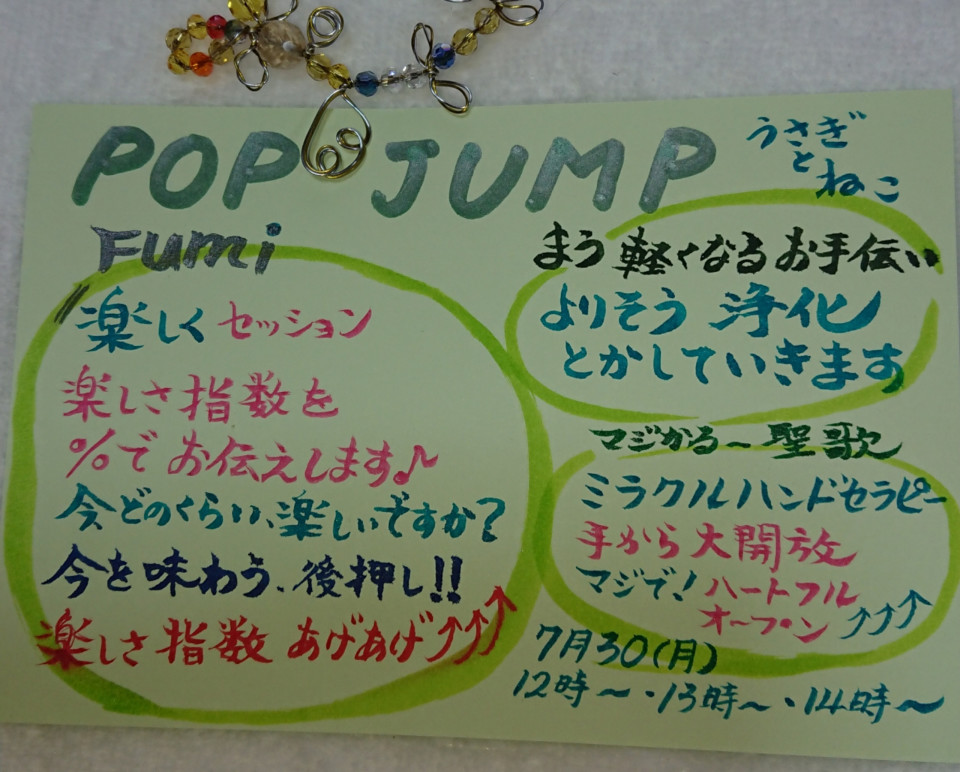 POP JUMP
うさぎ
と
ねこ
Fumi
楽しくセッション
楽しさ指数を
%でお伝えします♪
今どのくらい、楽しいですか?
今を味わう、後押し!!
楽しさ指数 あげあげ↑↑↑
まう 軽くなるお手伝い
よりそう 浄化
とかしていきます
マジかる~聖歌
ミラクルハンドセラピー
手から大開放
マジで!ハートフル
オープン↑↑↑
7月30(月)
12時~・13時~・14時~